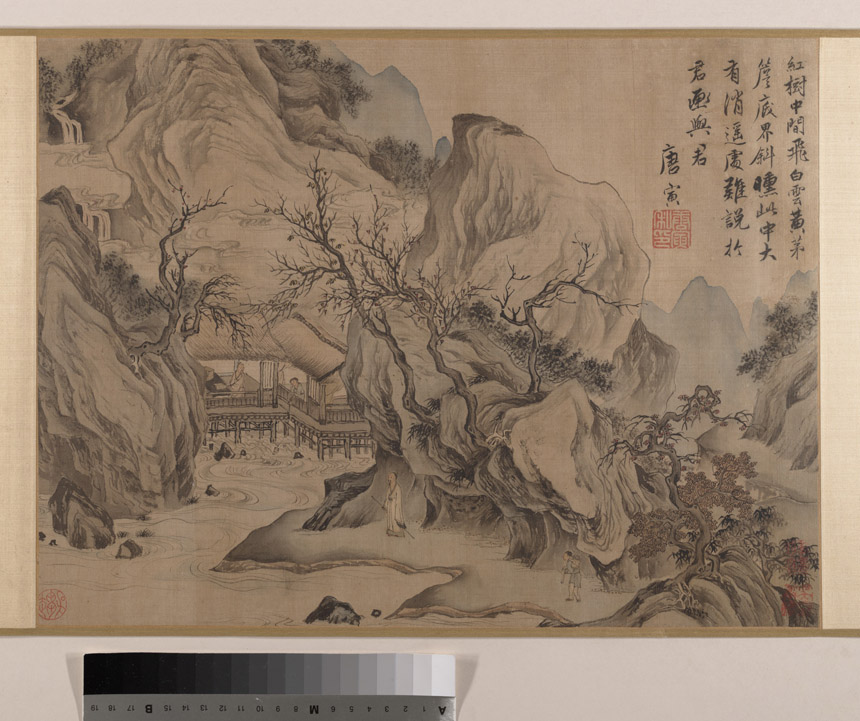 紅樹中間飛白雲黃茅
簷底界斜曛此中大
有消遙處難說於
君畫與君
唐寅
A 1 2 3 4 5 6 M 8 9 10 11 12 13 14 15 B 17 18 19